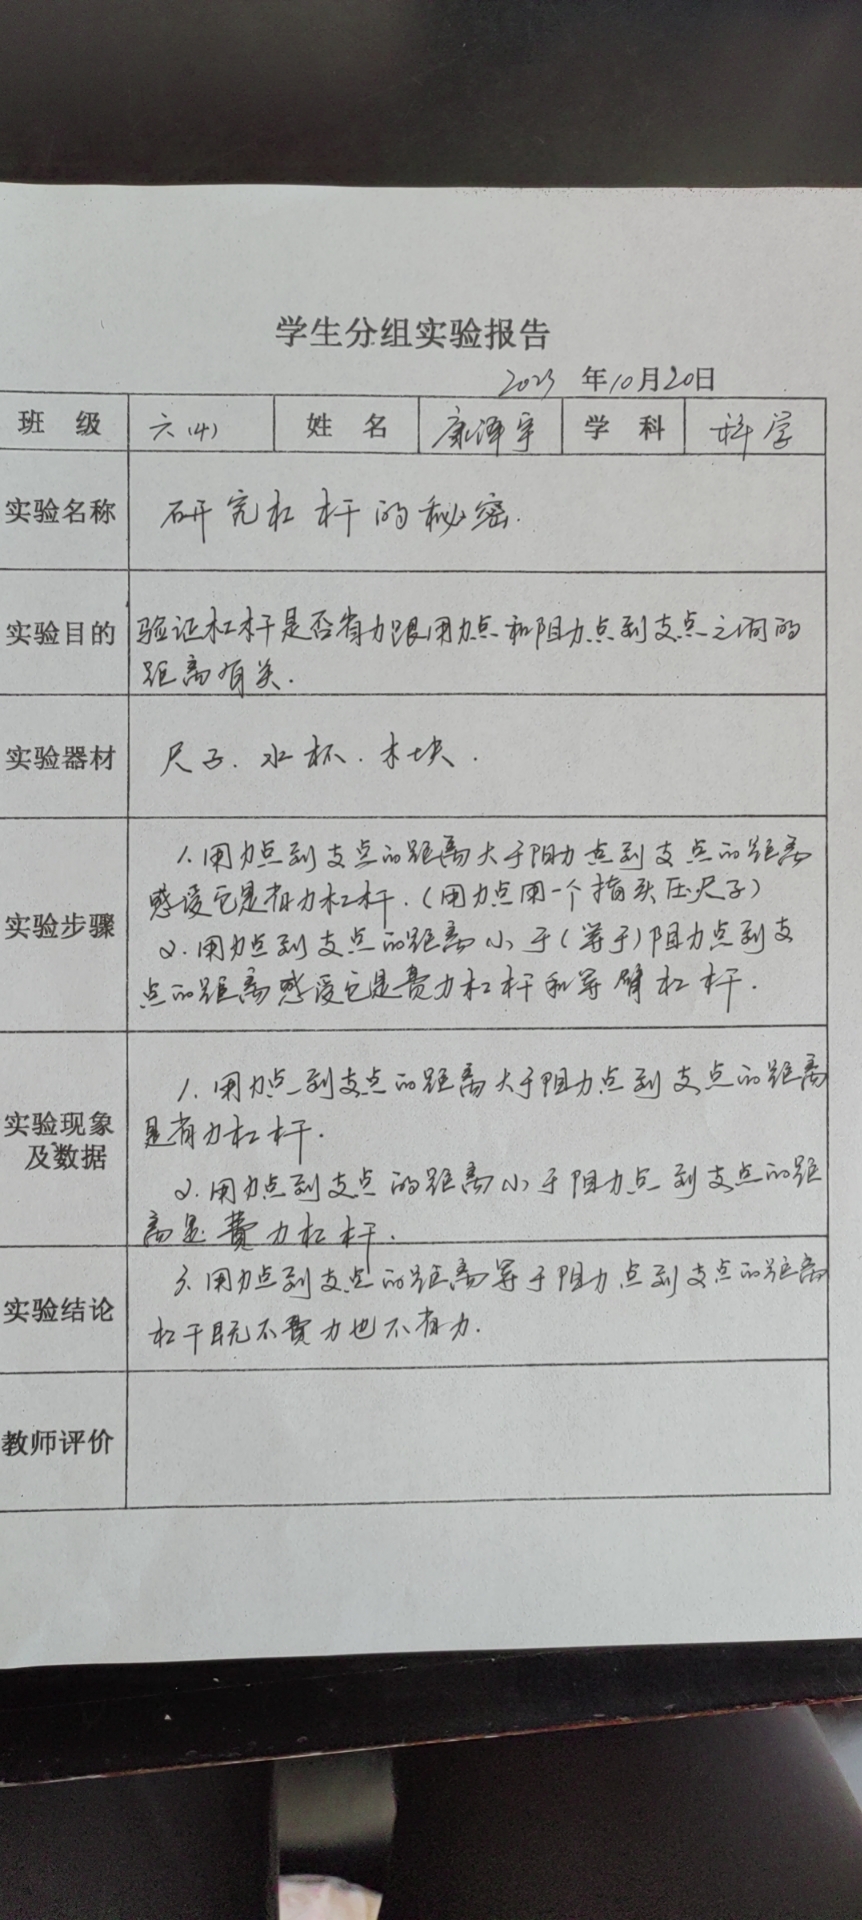 学生分组实验报告
2023 年10月20日
班 级 六(4) 姓 名 康泽宇 学 科 科学
实验名称 研究杠杆的秘密.
实验目的 验证杠杆是否省力跟用力点和阻力点到支点之间的
距离有关.
实验器材 尺子. 水杯. 木块.
实验步骤
1. 用力点到支点的距离大于阻力点到支点的距离
感受它是省力杠杆.(用力点用一个指头压尺子)
2. 用力点到支点的距离小于(等于)阻力点到支
点的距离感受它是费力杠杆和等臂杠杆.
实验现象
及数据
1. 用力点到支点的距离大于阻力点到支点的距离
是省力杠杆.
2. 用力点到支点的距离小于阻力点到支点的距
离是费力杠杆.
实验结论
3. 用力点到支点的距离等于阻力点到支点的距离
杠干既不费力也不省力.
教师评价